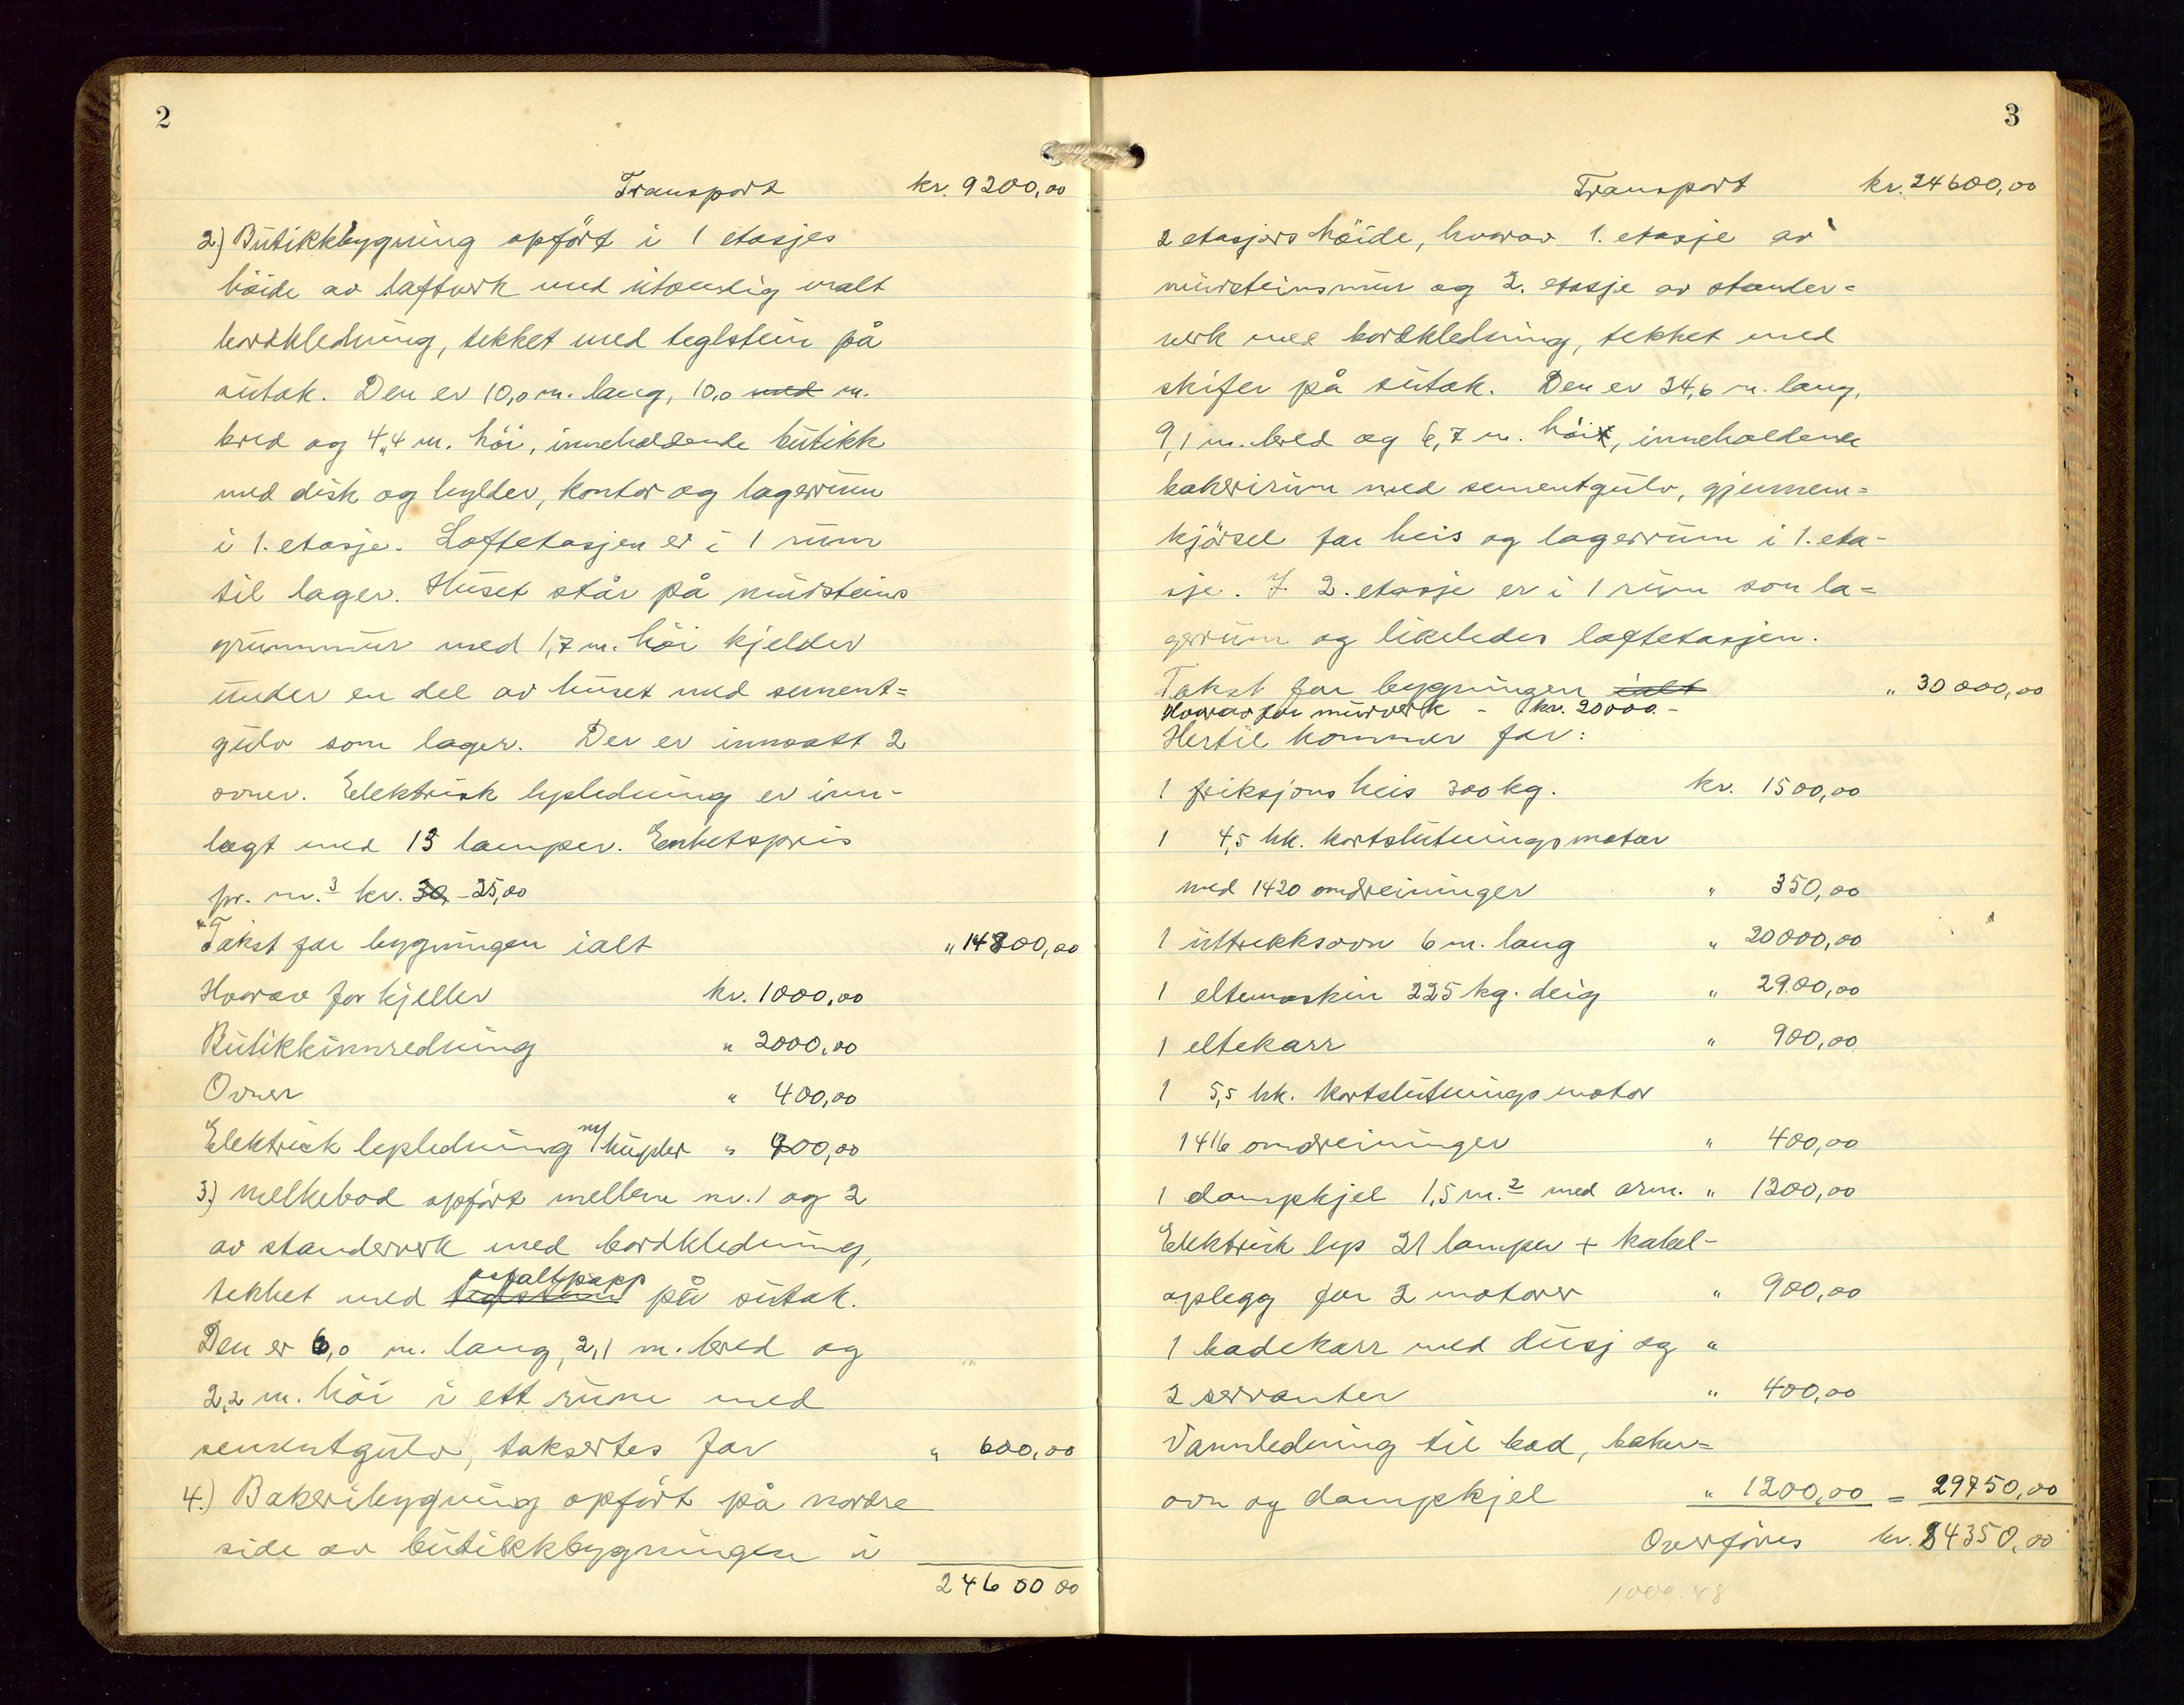 2
Transport kr. 9200,00
2.) Butikkbygning opført i 1 etasjes
høide av laftverk med utvendig malt
bordkledning, tekket med teglstein på
sutak. Den er 10,0 m. lang, 10,0 med m.
bred og 4,4 m. høi, inneholdende butikk
med disk og hylder, kontor og lagerrum
i 1. etasje. Loftetasjen er i 1 rum
til lager. Huset står på mursteins
grunnmur med 1,7 m. høi kjelder
under en del av huset med sement=
gulv som lager. Der er innsatt 2
ovner. Elektrisk lysledning er inn-
lagt med 13 lamper. Enhetspris
pr. m.3 kr. 30,- 25,00
Takst for bygningen ialt " 14800,00
Hvorav for kjeller kr. 1000,00
Butikkinnredning " 2000,00
Ovner " 400,00
Elektrisk lysledning m/kupler " 400,00
3.) Melkebod opført mellem nr. 1 og 2
av standerverk med bordkledning,
asfaltpapp
tekket med teglstein på sutak.
Den er 6,0 m. lang, 2,1 m. bred og
2,2 m. høi i ett rum med
sementgulv, taksertes for " 600,00
4.) Bakeribygning opført på nordre
side av butikkbygningen i
24600 00
3
Transport kr. 24600,00
2 etasjers høide, hvorav 1. etasje av
mursteinsmur og 2. etasje av stander=
verk med bordkledning, tekket med
skifer på sutak. Den er 24,6 m. lang,
9,1 m. bred og 6,7 m. høi, inneholdende
bakerirum med sementgulv, gjennem=
kjørsel for heis og lagerrum i 1. eta-
sje. I 2. etasje er i 1 rum som la=
gerrum og likeledes loftetasjen.
Takst for bygningen ialt " 30000,00
Hvorav for murverk - kr. 20000.-
Hertil kommer for:
1 friksjons heis 300 kg. kr. 1500,00
1 4,5 hk. kortslutningsmotor
med 1420 omdreininger " 350,00
1 uttrekksovn 6 m. lang " 20000,00
1 eltemaskin 225 kg. deig " 2900,00
1 eltekarr " 900,00
1 5,5 hk. kortslutnings motor
1416 omdreininger " 400,00
1 dampkjel 1,5 m.2 med arm. " 1200,00
Elektrisk lys 21 lamper + kabel-
oplegg for 2 motorer " 900,00
1 badekarr med dusj og "
2 servanter " 400,00
Vannledning til bad, baker=
ovn og dampkjel " 1200,00 = 29750,00
Overføres kr. 84350,00